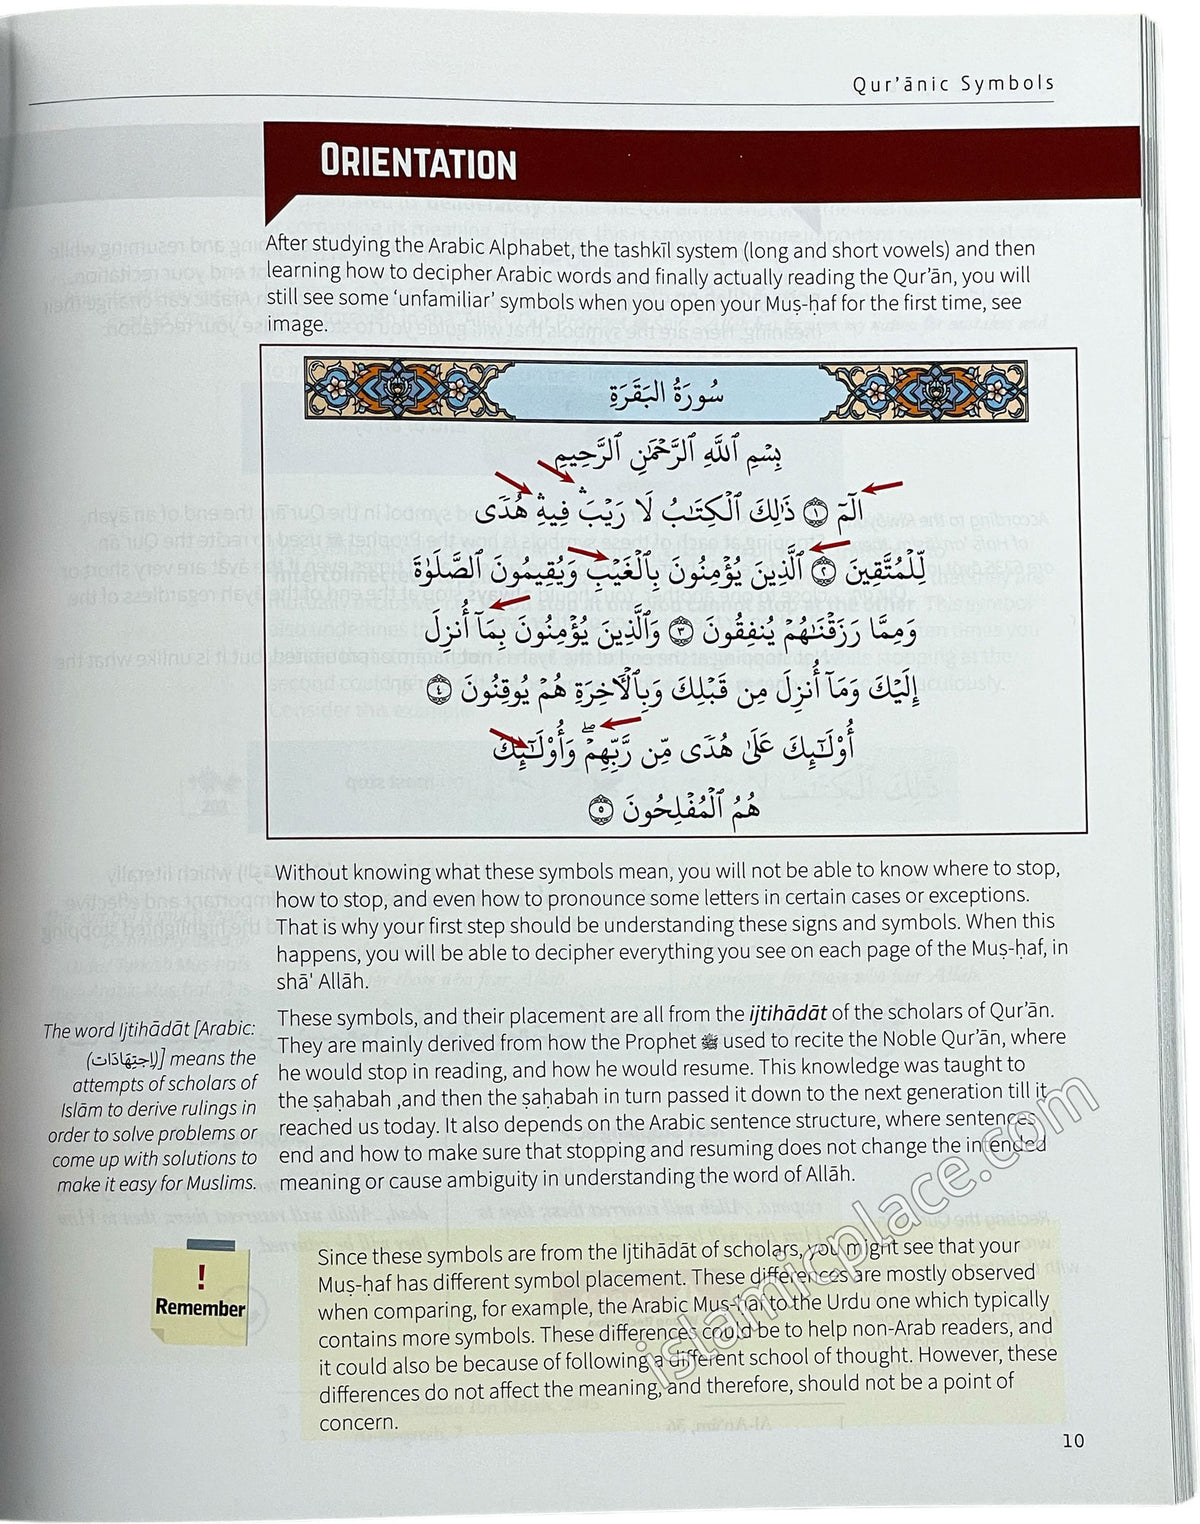 Qur'ānic Symbols
ORIENTATION
After studying the Arabic Alphabet, the tashkīl system (long and short vowels) and then
learning how to decipher Arabic words and finally actually reading the Qur'ān, you will
still see some 'unfamiliar' symbols when you open your Muṣ-ḥaf for the first time, see
image.
سُورَةُ البَقَرَةِ
بِسْمِ ٱللَّهِ ٱلرَّحْمَٰنِ ٱلرَّحِيمِ
الٓمٓ ١ ذَٰلِكَ ٱلْكِتَٰبُ لَا رَيْبَ ۛ فِيهِ ۛ هُدًى
لِّلْمُتَّقِينَ ٢ ٱلَّذِينَ يُؤْمِنُونَ بِٱلْغَيْبِ وَيُقِيمُونَ ٱلصَّلَوٰةَ
وَمِمَّا رَزَقْنَٰهُمْ يُنفِقُونَ ٣ وَٱلَّذِينَ يُؤْمِنُونَ بِمَآ أُنزِلَ
إِلَيْكَ وَمَآ أُنزِلَ مِن قَبْلِكَ وَبِٱلْءَاخِرَةِ هُمْ يُوقِنُونَ ٤
أُوْلَٰٓئِكَ عَلَىٰ هُدًى مِّن رَّبِّهِمْ ۖ وَأُوْلَٰٓئِكَ
هُمُ ٱلْمُفْلِحُونَ ٥
Without knowing what these symbols mean, you will not be able to know where to stop,
how to stop, and even how to pronounce some letters in certain cases or exceptions.
That is why your first step should be understanding these signs and symbols. When this
happens, you will be able to decipher everything you see on each page of the Muṣ-ḥaf, in
shā' Allāh.
These symbols, and their placement are all from the ijtihādāt of the scholars of Qur'ān.
They are mainly derived from how the Prophet ﷺ used to recite the Noble Qur'ān, where
he would stop in reading, and how he would resume. This knowledge was taught to
the ṣaḥabah ,and then the ṣaḥabah in turn passed it down to the next generation till it
reached us today. It also depends on the Arabic sentence structure, where sentences
end and how to make sure that stopping and resuming does not change the intended
meaning or cause ambiguity in understanding the word of Allāh.
The word Ijtihādāt [Arabic:
(اِجتِهَادَات)] means the
attempts of scholars of
Islām to derive rulings in
order to solve problems or
come up with solutions to
make it easy for Muslims.
!
Remember
Since these symbols are from the Ijtihādāt of scholars, you might see that your
Muṣ-ḥaf has different symbol placement. These differences are mostly observed
when comparing, for example, the Arabic Muṣ-ḥaf to the Urdu one which typically
contains more symbols. These differences could be to help non-Arab readers, and
it could also be because of following a different school of thought. However, these
differences do not affect the meaning, and therefore, should not be a point of
concern.
10
islamicplace.com